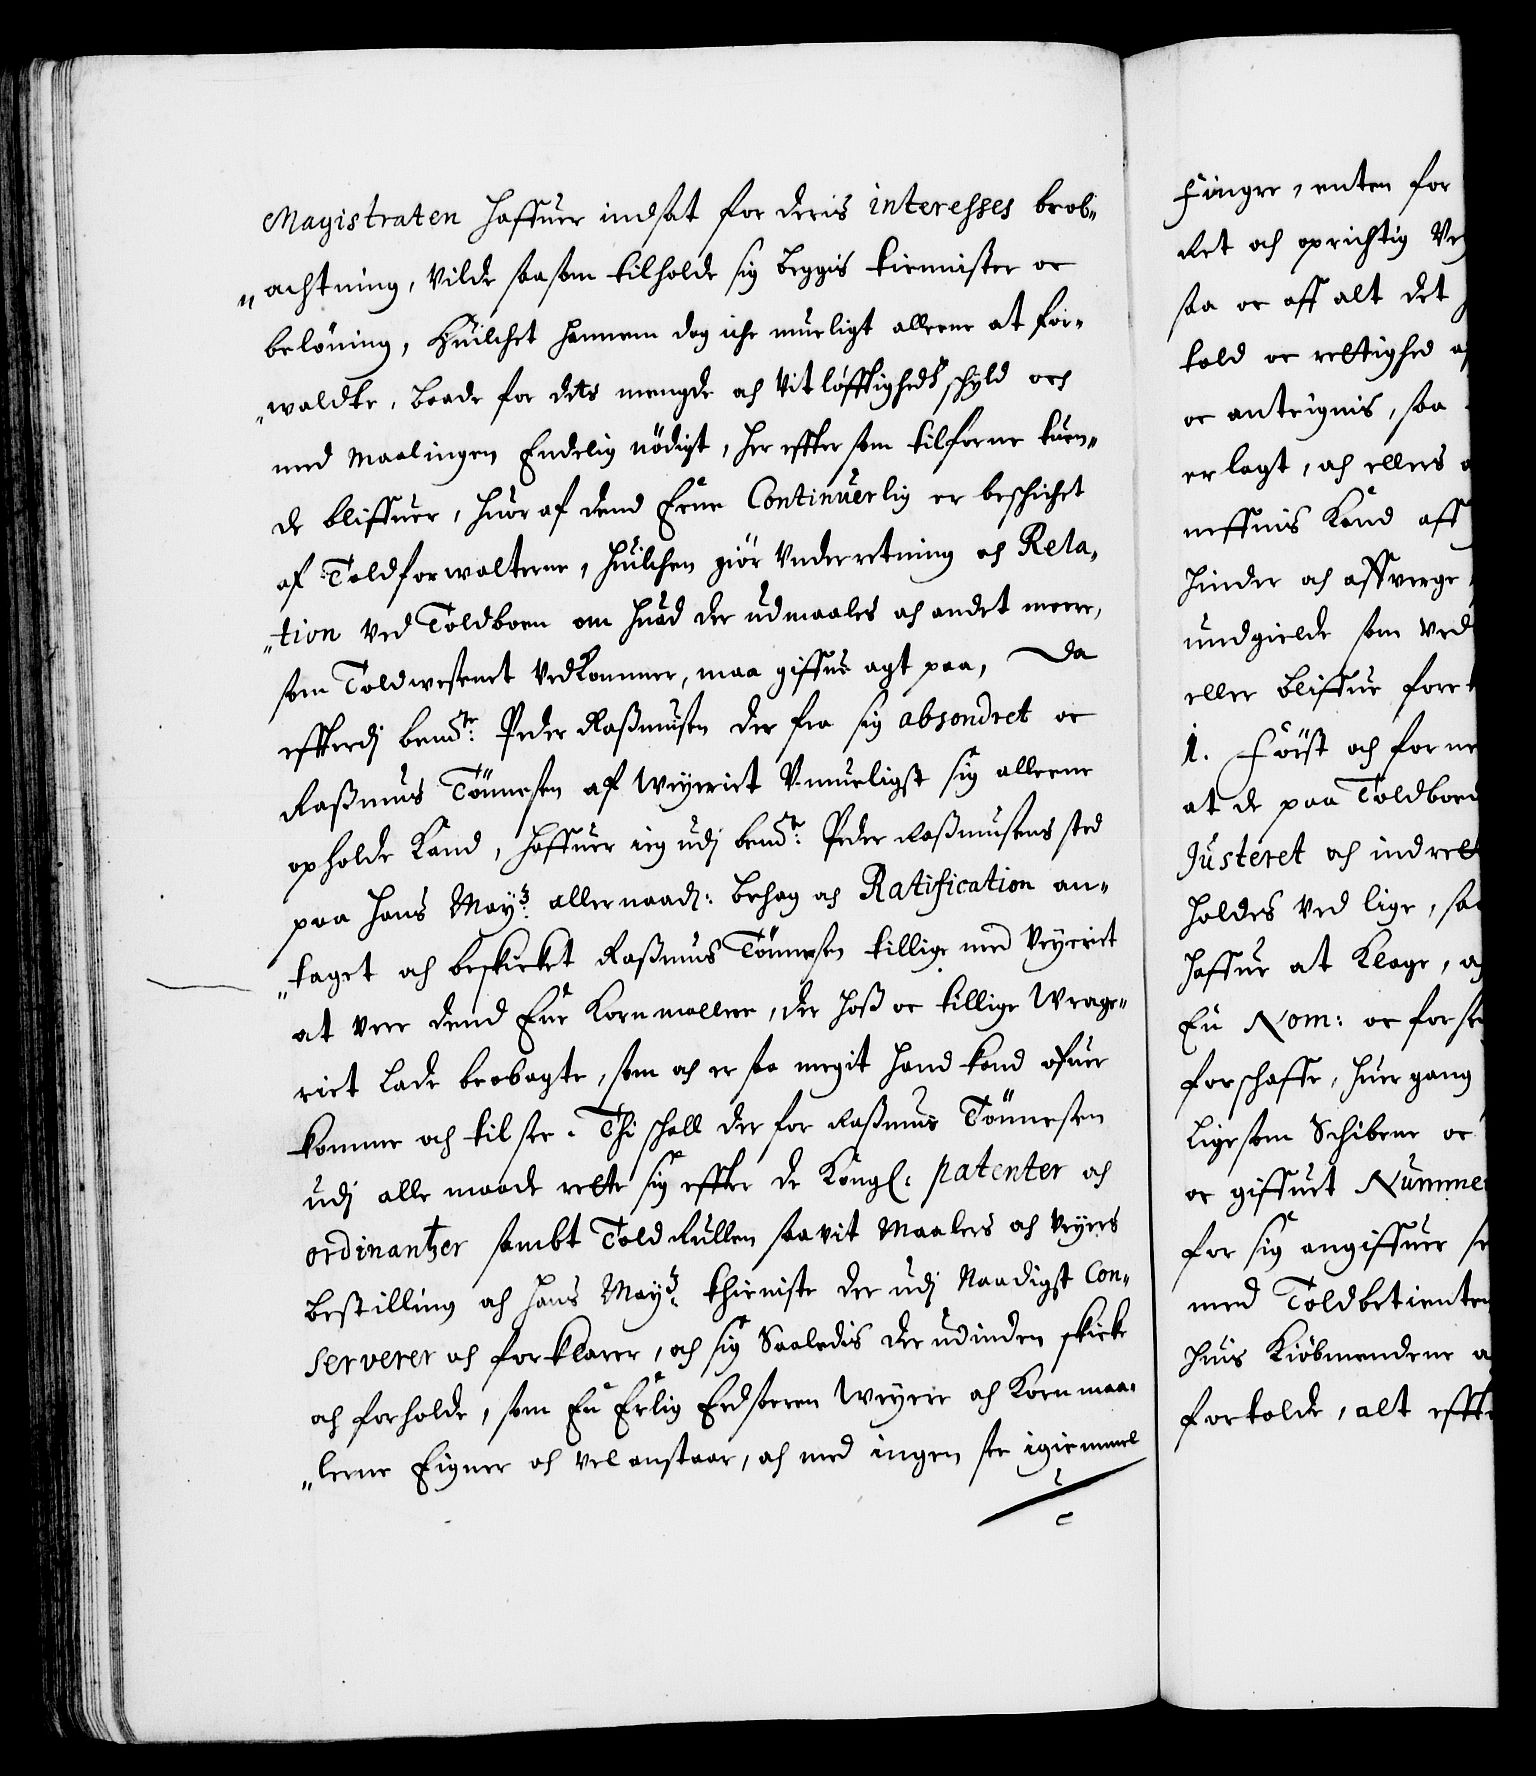 Magistraten haffuer indsat for deris interesses beob-
„achtning, Vilde saasom tilholde sig beggis tiennister oc
belöning, Huilchet hannem dog iche mueligt alleene at for-
„waldte, baade for dets mengde och Vitløfftigheds schyld och
med Maalingen Endelig nödigt, her effter som tilforne kuen-
de bliffuer, huor af dend Eene Continuerlig er beschichet
af Toldforwalterne, huilchen giör Underretning och Rela-
„tion ved Toldboen om huad der udmaales och andet meere,
som Toldwesenet Vedkommer, maa giffue agt paa, Da
effterdj bemte: Peder Raßmusen der fra sig absondret oc
Raßmus Tönnesen af Weyeriet Umueligst sig alleene
opholde Kand, haffuer ieg udj bemte: Peder Raßmusens sted
paa Hans Mayts: allernaadj: behag och Ratification an-
„taget och beskicket Raßmus Tönnesen tillige med Veyeriet
at vere dend Eene Korn maallere, der hoß oc tillige Wrage-
riet lade beobagte, som och er saa megit hand kand ofuer
komme och til see. Thi schall der for Raßmus Tönnesen
udj alle maade rette sig effter de Kongl: patenter och
ordinantzer sambt Told Rullen saavit Maalers och Veyers
bestilling och Hans Mayts thieniste der udj Naadigst Con-
serverer och forklarer, och sig Saaledis der udinden skicke
och forholde, som En Erlig Edsoren Weyere och Korn maa-
„lere Eigner och vel anstaar, och med ingen see igiemmel
Fingre, enten for
Ret och oprichtig Vey
saa oc aff alt det
told oc rettighed af
oc antegnis, saa
erlagt, och ellers
neffnis Kand aff
hinder och affverge
undgielde som ved
eller bliffue fore
1. Först och forne
at de paa Toldboed
Justeret och indrett
holdes ved lige, saa
haffue at Klage, och
En Nom: oc forse
forschaffe, huer gang
ligesom Schibene oc
oc giffuet Numme
for sig angiffuer
med Toldbetienten
huis Kiöbmendene
fortolde, alt efft